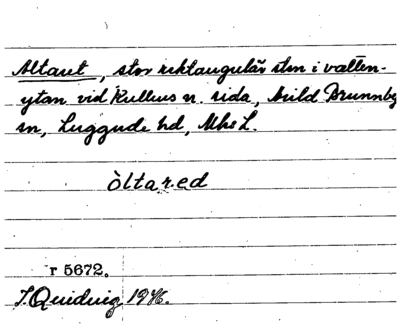 Altaret, stor rektangulär sten i vatten-
ytan vid Kullens n. sida, Arild Brunnby
sn, Luggude hd, Mhs L.
òltared
r 5672.
J. Quidvig 1946.